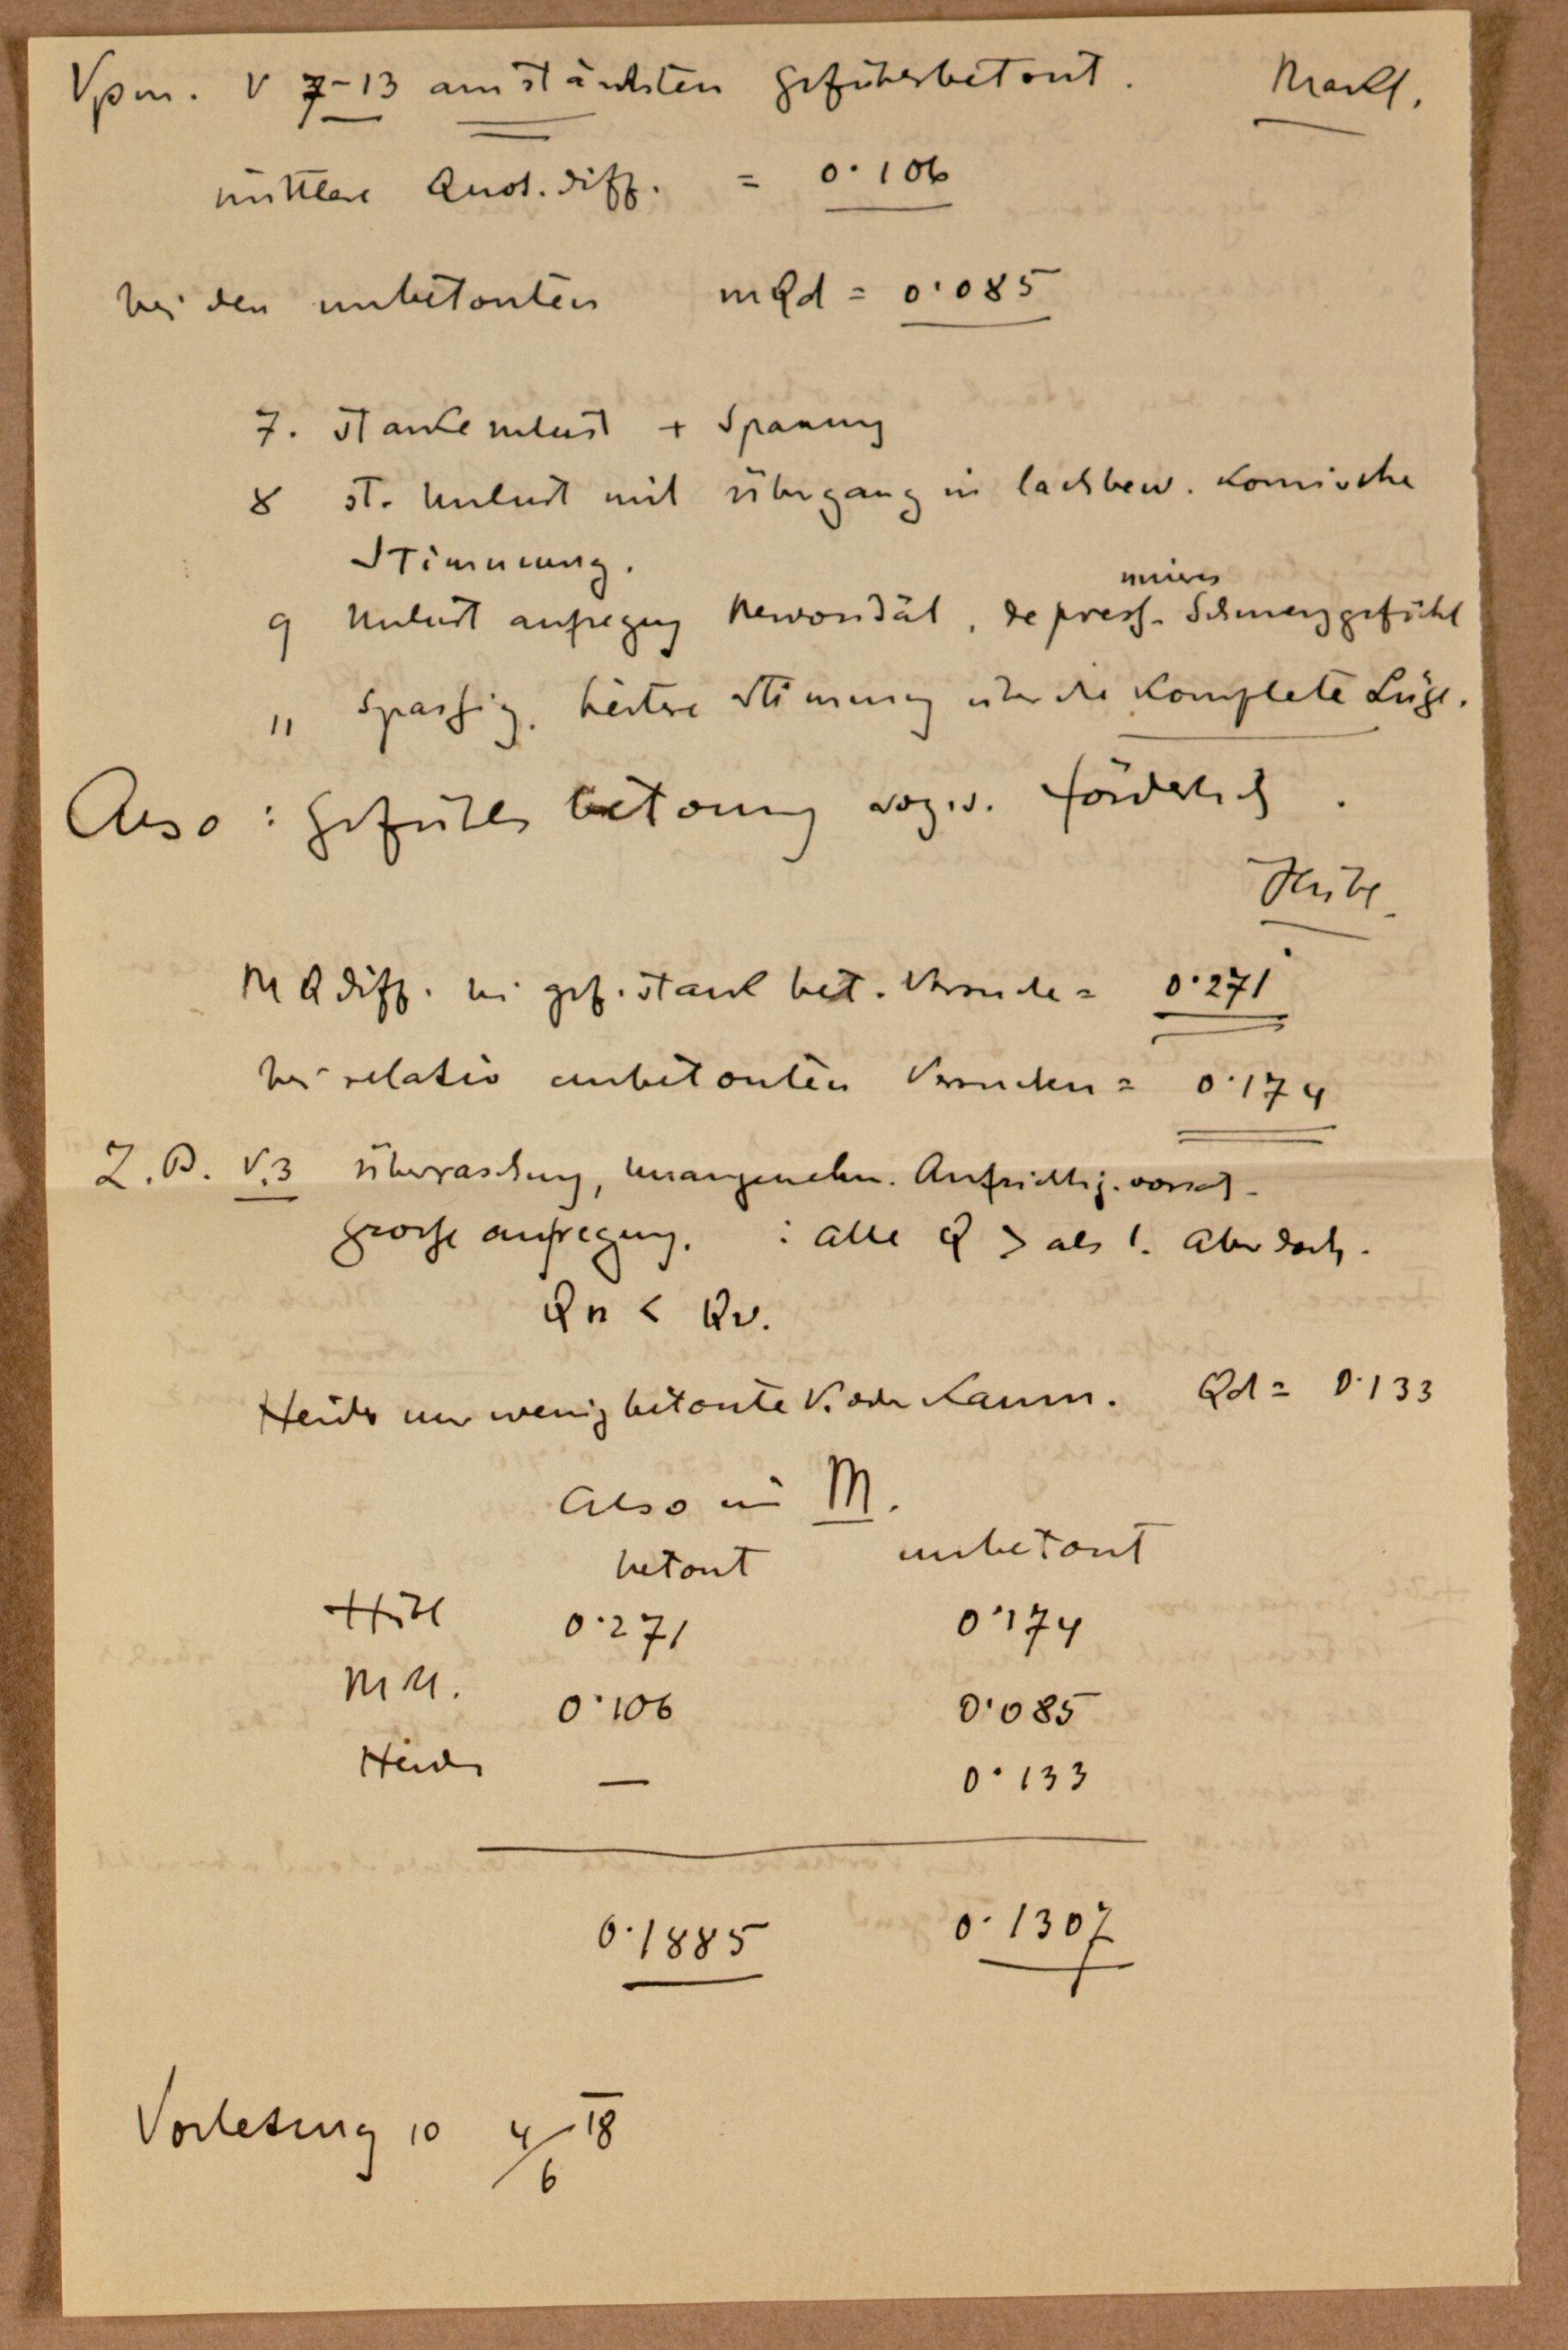 Vpm. V 7-13 am stärksten gefühlsbetont.
mittlere Quot. diff. = 0·106
bei den unbetonten mQd = 0·085
7. starke Unlust + Spannung
8 st. Unlust mit Übergang in komische
Stimmung.
9 Unlust aufregung Nervosität, depress. Schmerzgefühl
11 Spassig. heitere Stimmung über die komplete Lüge.
Also : Gefühlsbetonung förderlich .
M Q diff. bei gef. stark bet. Versuche = 0·271
bei relativ unbetonten Versuchen = 0·174
Z.B. V.3 Überraschung, unangenehm. Aufrichtig.
grosse aufregung. : alle Q > als 1. Aber doch.
Qn < Qv.
Heider nur wenig betonte V. oder kaum. Qd = 0·133
Also im M.
betont unbetont
0·271 0·174
0·106 0·085
Heider — 0·133
0·1885 0·1307
Vorlesung 10 4/6 18